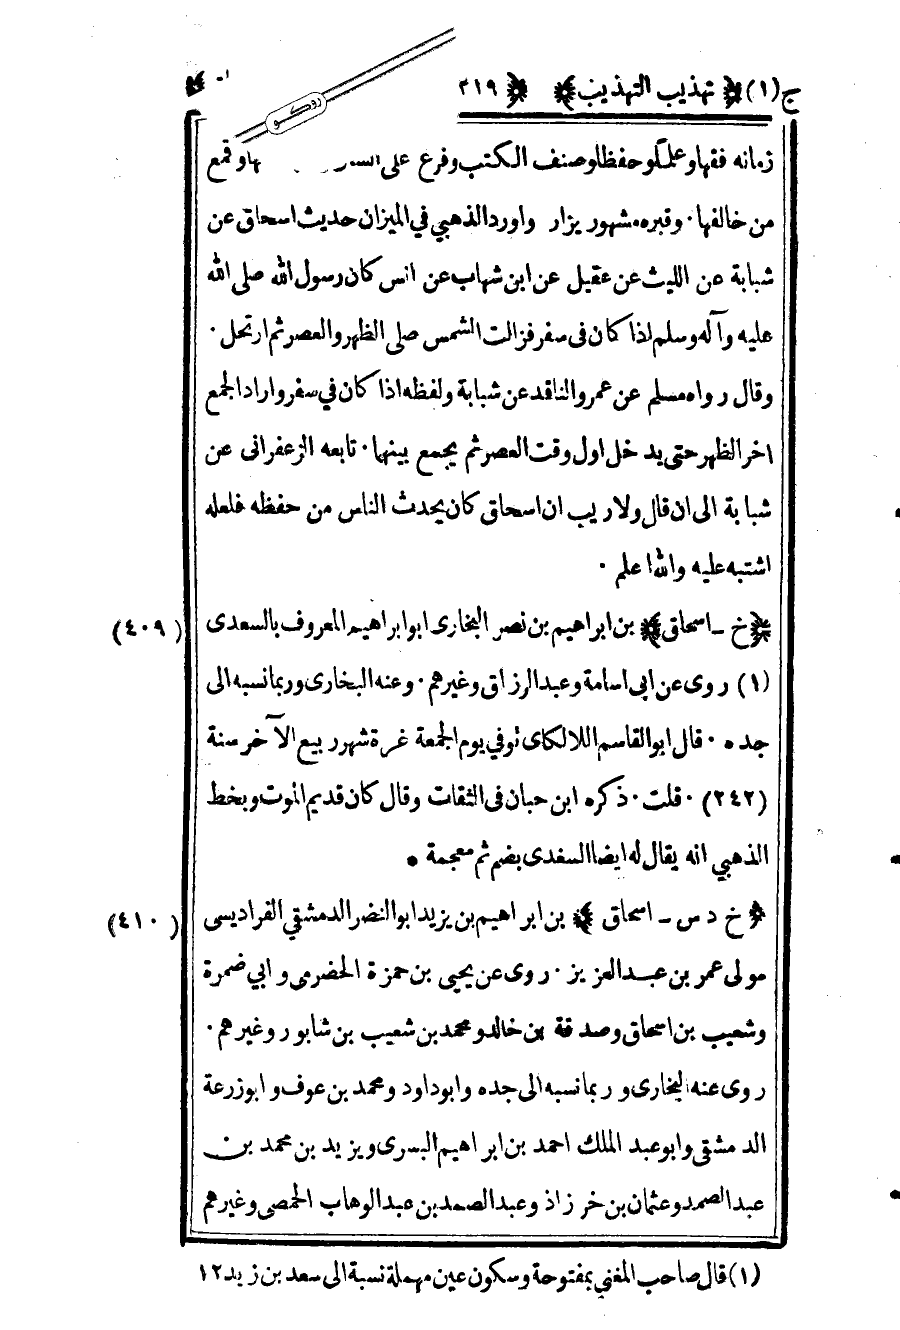 ج (١) ﴿ تهذيب التهذيب ﴾ ﴿ ٢١٩ ﴾
روكو
زمانه فقها وعلما وحفظا وصنف الكتب وفرع على وقمع
من خالفها · وقبره مشهور يزار واورد الذهبي في الميزان حديث اسحاق عن
شبابة عن الليث عن عقيل عن ابن شهاب عن انس كان رسول الله صلى الله
عليه وآله وسلم اذا كان فى سفر فزالت الشمس صلى الظهر والعصر ثم ارتحل ·
وقال رواه مسلم عن عمرو الناقد عن شبابة ولفظه اذا كان في سفر واراد الجمع
اخر الظهر حتى يدخل اول وقت العصر ثم يجمع بينهما · تابعه الزعفرانى عن
شبابة الى ان قال ولا ريب ان اسحاق كان يحدث الناس من حفظه فلعله
اشتبه عليه والله اعلم ·
﴿ خ – اسحاق ﴾ بن ابراهيم بن نصر البخارى ابو ابراهيم المعروف بالسعدى (٤٠٩)
(١) روى عن ابى اسامة وعبد الرزاق وغيرهم · وعنه البخارى وربما نسبه الى
جده · قال ابو القاسم اللالكاى توفي يوم الجمعة غرة شهر ربيع الآخر سنة
(٢٤٢) · قلت · ذكره ابن حبان فى الثقات وقال كان قديم الموت وبخط
الذهبي انه يقال له ايضا السغدى بضم ثم معجمة •
﴿ خ د س – اسحاق ﴾ بن ابراهيم بن يزيد ابو النضر الدمشقي الفراديسى (٤١٠)
مولى عمر بن عبد العزيز · روى عن يحيى بن حمزة الحضرمى وابي ضمرة
وشعيب بن اسحاق وصدقة بن خالد ومحمد بن شعيب بن شابور وغيرهم ·
روى عنه البخارى وربما نسبه الى جده وابو داود ومحمد بن عوف وابو زرعة
الدمشقى وابو عبد الملك احمد بن ابراهيم البسرى ويزيد بن محمد بن
عبد الصمد وعثمان بن خرزاذ وعبد الصمد بن عبد الوهاب الحمصى وغيرهم
(١) قال صاحب المغني بمفتوحة وسكون عين مهملة نسبة الى سعد بن زيد ١٢